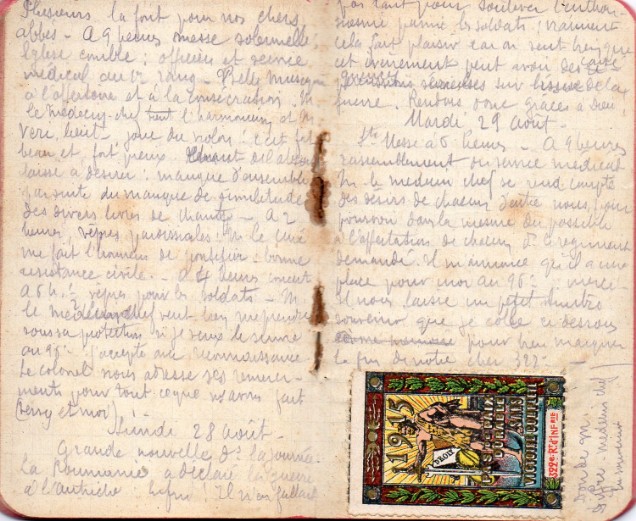 Plusieurs, la font pour nos chers
abbés - A 9 heures messe solennelle
Eglise comble ; officiers et service
médical au 1er rang - Belle musique
à l'offertoire et à la consécration. M
le médecin-chef tient l'harmonium et M
joue du violon : c'est fort
beau et fort pieux.
laisse à désirer : manque d'ensemble
par suite du manque de similitude
des divers livres de chants - A 2
heures, vêpres paroissiales. M le curé
me fait l'honneur de pontifier : bonne
assistance civile. - A 4 heures concert
A 6 h. vêpres pour les soldats - M
le médecin chef veut bien me prendre
sous sa protection si je veux le suivre
au 96e j'accepte avec reconnaissance.
Le colonel nous adresse ses remercie-
ments pour tout ce que nous avons fait
et moi)
Lundi 28 août
Grande nouvelle de la journée
La Roumanie a déclaré la guerre
à l'Autriche Il n'en fallait
pas tant pour soulever l'enthou-
siasme parmi les soldats ; vraiment
cela fait plaisir car on sent bien que
cet événement peut avoir des
sur l'issue de la
guerre. Rendons donc grâces à Dieu
Mardi 29 Août -
Ste Messe à 6 heures - A 9 heures
rassemblement du service médical
M. le médecin chef se rend compte
des désirs de chacun d'entre nous, pour
pourvoir dans la mesure du possible
à l'affectation de chacun au régiment
demandé. Il m'annonce qu'il a une
place pour moi au 96e - merci -
Il nous laisse un petit timbre
souvenir que je colle ci dessous
pour bien marquer
la fin de notre cher 322e -
1914 15
DROIT
L'AS DANS LA BATAILLE
L'AIS
VICTORIEUX
322e Rt d'INFrie
Don de M.
médecin chef